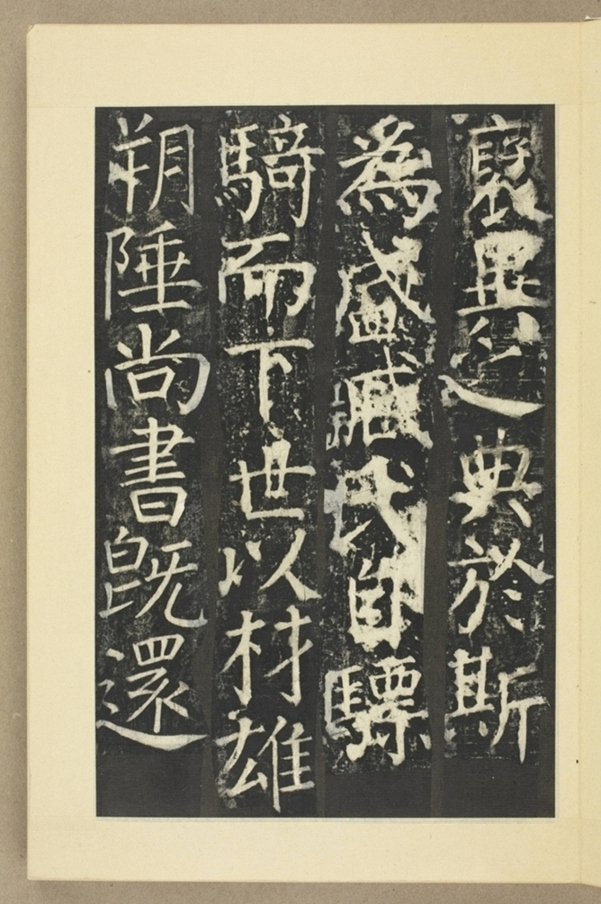 褒異之典於斯
為盛臧氏自驃
騎而下世以材雄
朔陲尚書既還